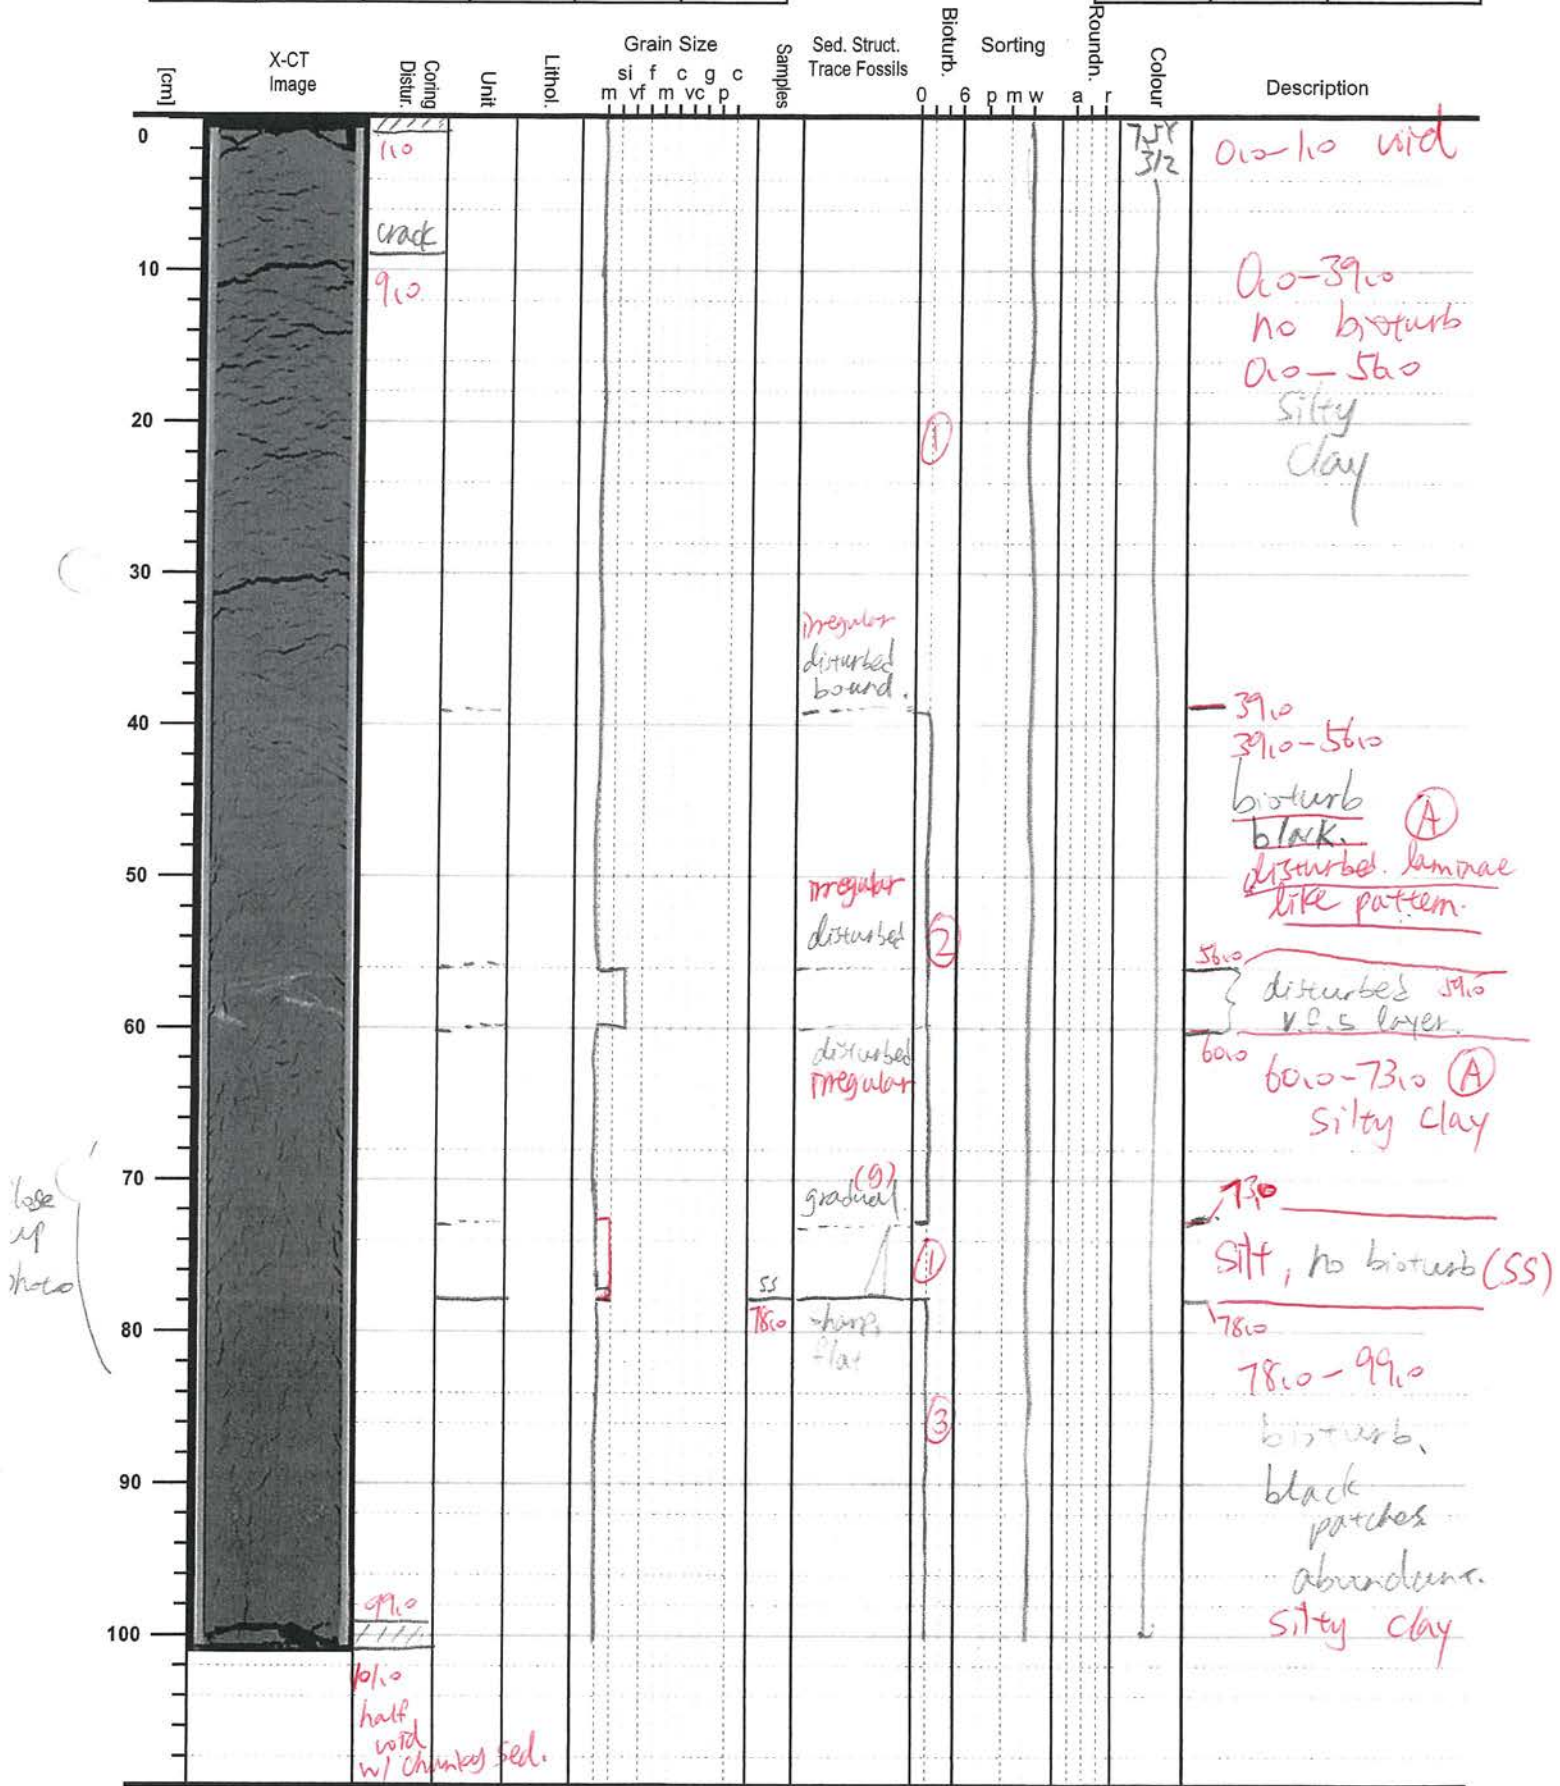 [cm]
X-CT
Image
Coring
Distur.
Unit
Lithol.
Grain Size
si f c g c
m vf m vc p
Samples
Sed. Struct.
Trace Fossils
Bioturb.
0 6
Sorting
p m w
Roundn.
a r
Colour
Description
0
10
20
30
40
50
60
70
80
90
100
1.0
crack
9.0
99.0
101.0
half
void
w/ chunky sed.
irregular
disturbed
bound.
irregular
disturbed
disturbed
irregular
(g)
gradual
SS
78.0
sharp,
flat
1
2
1
3
7.5Y
3/2
0.0-1.0 void
0.0-39.0
no bioturb
0.0-56.0
silty
clay
39.0
39.0-56.0
bioturb
black. A
disturbed. laminae
like pattern.
56.0
disturbed 59.0
v.f.s layer.
60.0
60.0-73.0 A
silty clay
73.0
silt, no bioturb (SS)
78.0
78.0-99.0
bioturb.
black
patches
abundant.
silty clay
up